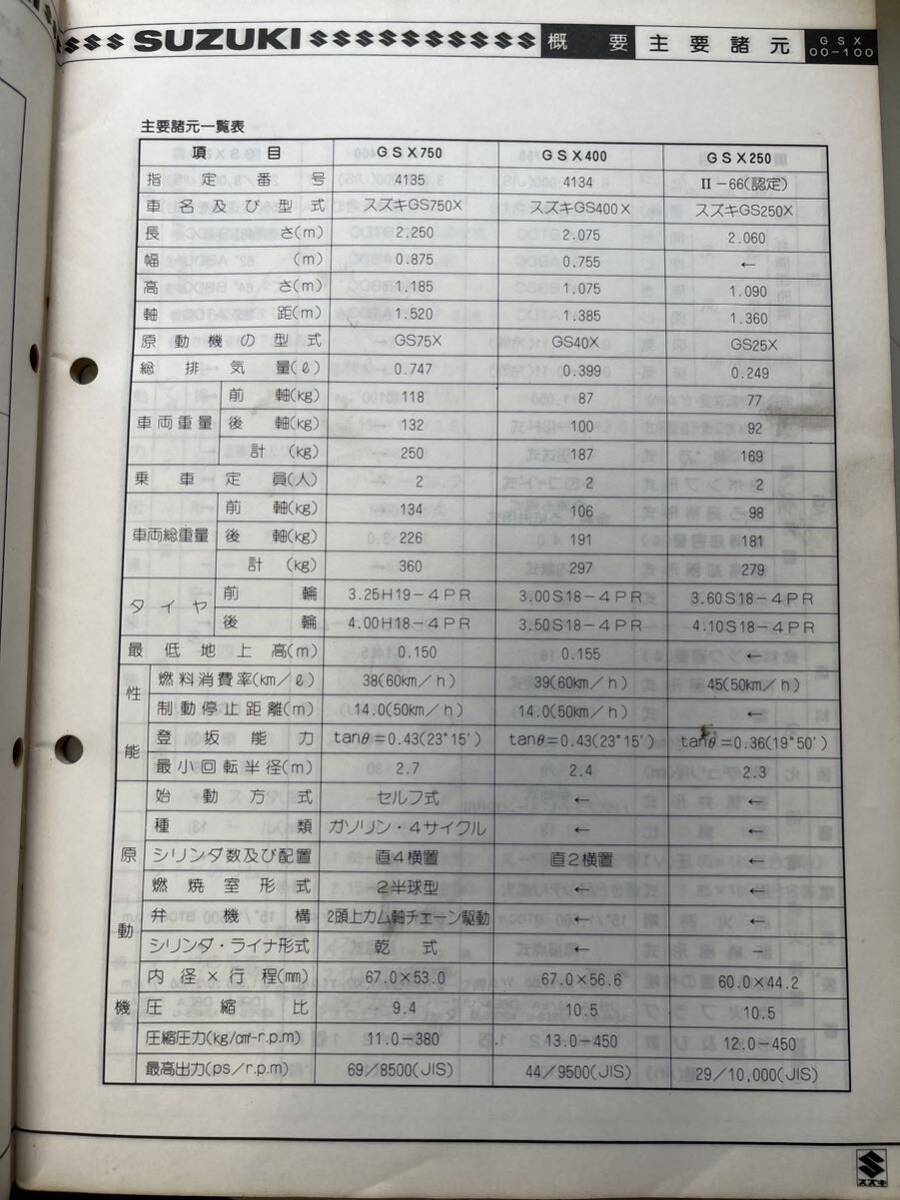 SUZUKI 概要 主要諸元 GSX
00-100
主要諸元一覧表
項目 GSX750 GSX400 GSX250
指定番号 4135 4134 II-66(認定)
車名及び型式 スズキGS750X スズキGS400X スズキGS250X
長さ(m) 2.250 2.075 2.060
幅(m) 0.875 0.755 ←
高さ(m) 1.185 1.075 1.090
軸距(m) 1.520 1.385 1.360
原動機の型式 GS75X GS40X GS25X
総排気量(ℓ) 0.747 0.399 0.249
車両重量 前軸(kg) 118 87 77
後軸(kg) 132 100 92
計(kg) 250 187 169
乗車定員(人) 2 2 2
車両総重量 前軸(kg) 134 106 98
後軸(kg) 226 191 181
計(kg) 360 297 279
タイヤ 前輪 3.25H19-4PR 3.00S18-4PR 3.60S18-4PR
後輪 4.00H18-4PR 3.50S18-4PR 4.10S18-4PR
最低地上高(m) 0.150 0.155 ←
性能 燃料消費率(km/ℓ) 38(60km/h) 39(60km/h) 45(50km/h)
制動停止距離(m) 14.0(50km/h) 14.0(50km/h) ←
登坂能力 tanθ=0.43(23°15′) tanθ=0.43(23°15′) tanθ=0.36(19°50′)
最小回転半径(m) 2.7 2.4 2.3
原動機 始動方式 セルフ式 ← ←
種類 ガソリン・4サイクル ← ←
シリンダ数及び配置 直4横置 直2横置 ←
燃焼室形式 2半球型 ← ←
弁機構 2頭上カム軸チェーン駆動 ← ←
シリンダ・ライナ形式 乾式 ← ←
内径×行程(mm) 67.0×53.0 67.0×56.6 60.0×44.2
圧縮比 9.4 10.5 10.5
圧縮圧力(kg/cm²-r.p.m) 11.0-380 13.0-450 12.0-450
最高出力(ps/r.p.m) 69/8500(JIS) 44/9500(JIS) 29/10,000(JIS)
スズキ